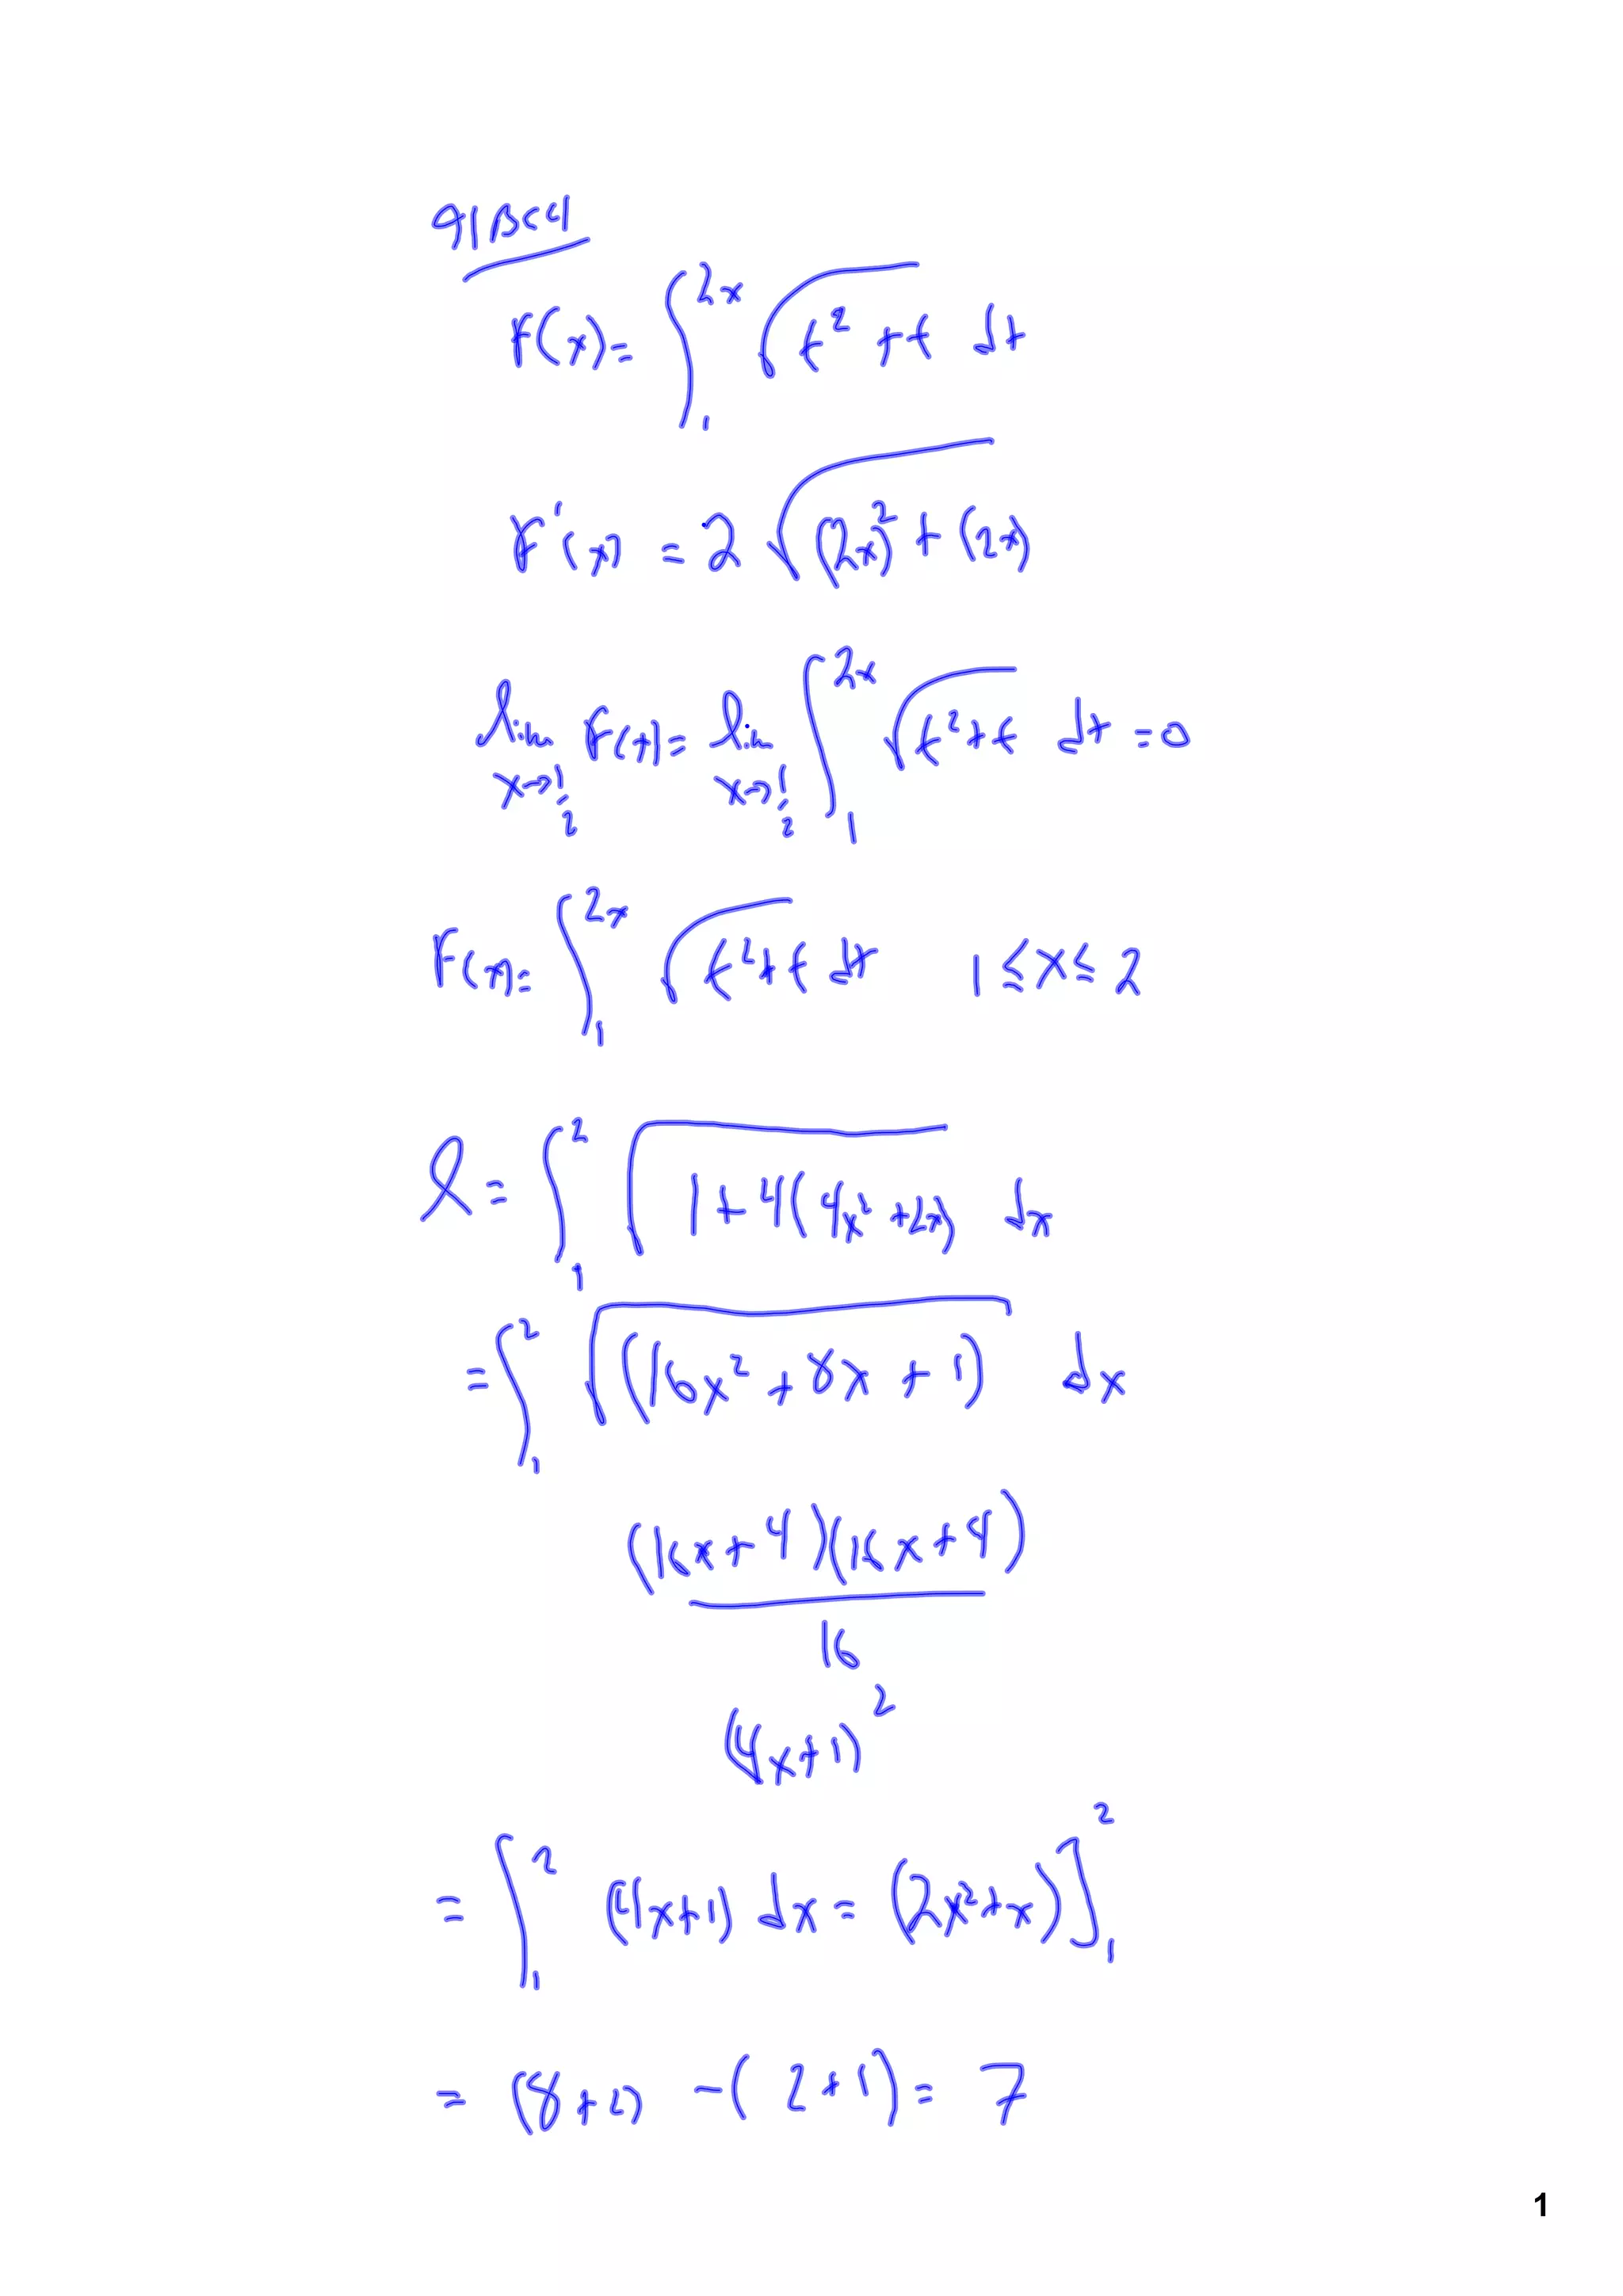 91BC4
F(x) = ∫₁^{2x} √(t² + t) dt
F'(x) = 2 √((2x)² + (2x))
lim_{x→1/2} F(x) = lim_{x→1/2} ∫₁^{2x} √(t² + t) dt = 0
F(x) = ∫₁^{2x} √(t² + t) dt 1 ≤ x ≤ 2
l = ∫₁² √(1 + 4(4x² + 2x)) dx
= ∫₁² √((16x² + 8x + 1)) dx
(16x + 4)(16x + 4)
16
(4x + 1)²
= ∫₁² (4x + 1) dx = (2x² + x)]₁²
= (8 + 2) - (2 + 1) = 7
1